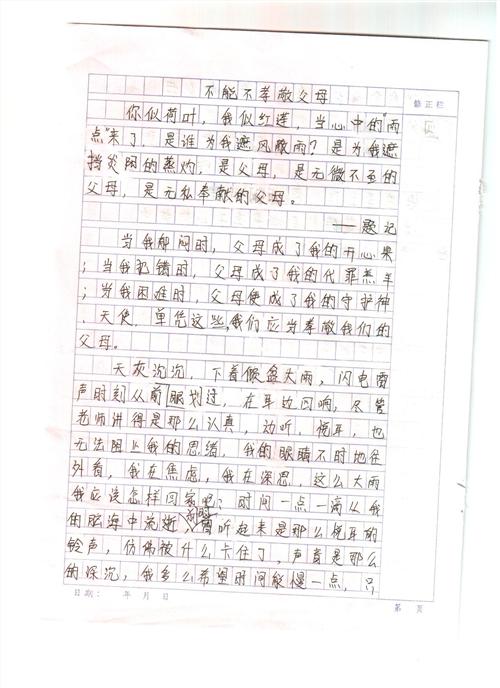 不能不孝敬父母
修正栏
你似荷叶，我似红莲，当心中的“雨
点”来了，是谁为我遮风蔽雨？是为我遮
挡炎阳的蒸灼，是父母，是无微不至的
父母，是无私奉献的父母。
——题记
当我郁闷时，父母成了我的开心果
；当我犯错时，父母成了我的代罪羔羊
；当我困难时，父母便成了我的守护神
、天使。单凭这些，我们应当孝敬我们的
父母。
天灰沉沉，下着倾盆大雨，闪电雷
声时刻从前眼划过，在耳边回响，尽管
老师讲得是那么认真，动听，悦耳，也
无法阻止我的思绪，我的眼睛不时地往
外看，我在焦虑，我在深思，这么大雨
我应该怎样回家呢？时间一点一滴从我
的脑海中流逝，前时曾听起来是那么悦耳的
铃声，仿佛被什么卡住了，声音是那么
的深沉，我多么希望时间能慢一点，只
日期： 年 月 日
第 页